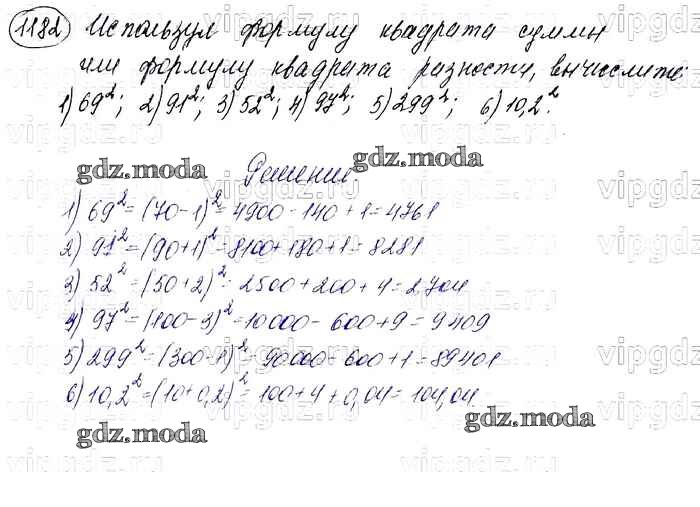 1182 Используя формулу квадрата суммы
или формулу квадрата разности, вычислите:
1) 69²; 2) 91²; 3) 52²; 4) 97²; 5) 299²; 6) 10,2².
gdz.moda gdz.moda
Решение
1) 69² = (70-1)² = 4900 - 140 + 1 = 4761
2) 91² = (90+1)² = 8100 + 180 + 1 = 8281
3) 52² = (50+2)² = 2500 + 200 + 4 = 2704
4) 97² = (100-3)² = 10000 - 600 + 9 = 9409
5) 299² = (300-1)² = 90000 - 600 + 1 = 89401
6) 10,2² = (10+0,2)² = 100 + 4 + 0,04 = 104,04
gdz.moda gdz.moda